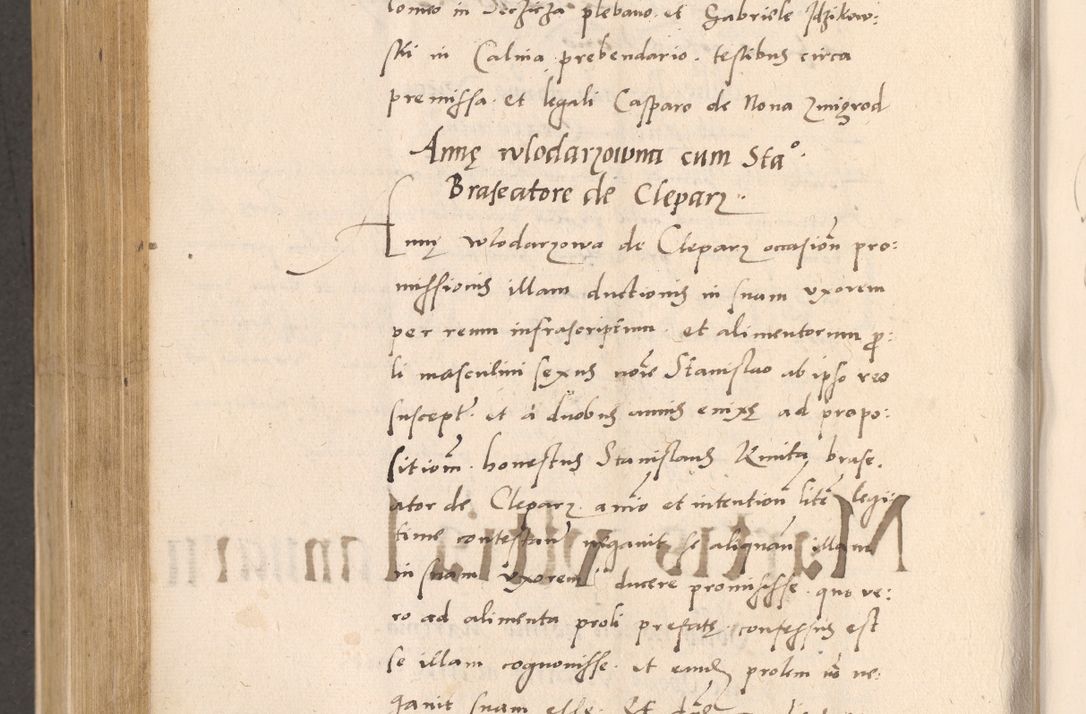 lomeo in Dechicza plebano. et Gabriele Jdzikow:
ski in Calina prebendario. testibus circa
premissa. et legali Casparo de Nona Zmigrod
Annę wlodarzowna cum Sta°.
Braseatore de Clepar.
Annę wlodarzowa de Clepar occasion pro:
missionis illam ductionis in suam vxorem
per reum infrascriptum. et alimentorum pro:
li masculini sexus noie Stanislao ab ipso reo
suscept. et a duobus annis enixę ad propo:
sitiom. honestus Stanislaus Kmita brase.
ator de Clepar. animo et intention litem legi:
time contestan negauit se aliquam illam
in suam vxorem ducere promisisse. quo ve:
ro ad alimenta proli prefatę. confessus est
se illam cognouisse. et eand prolem no ne:
gauit suam esse. Et
Martis Januarii